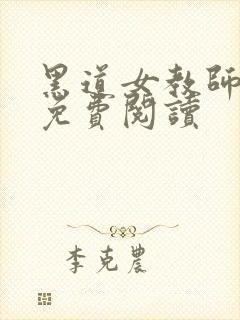 黑道女教師
免費閱讀
李克農